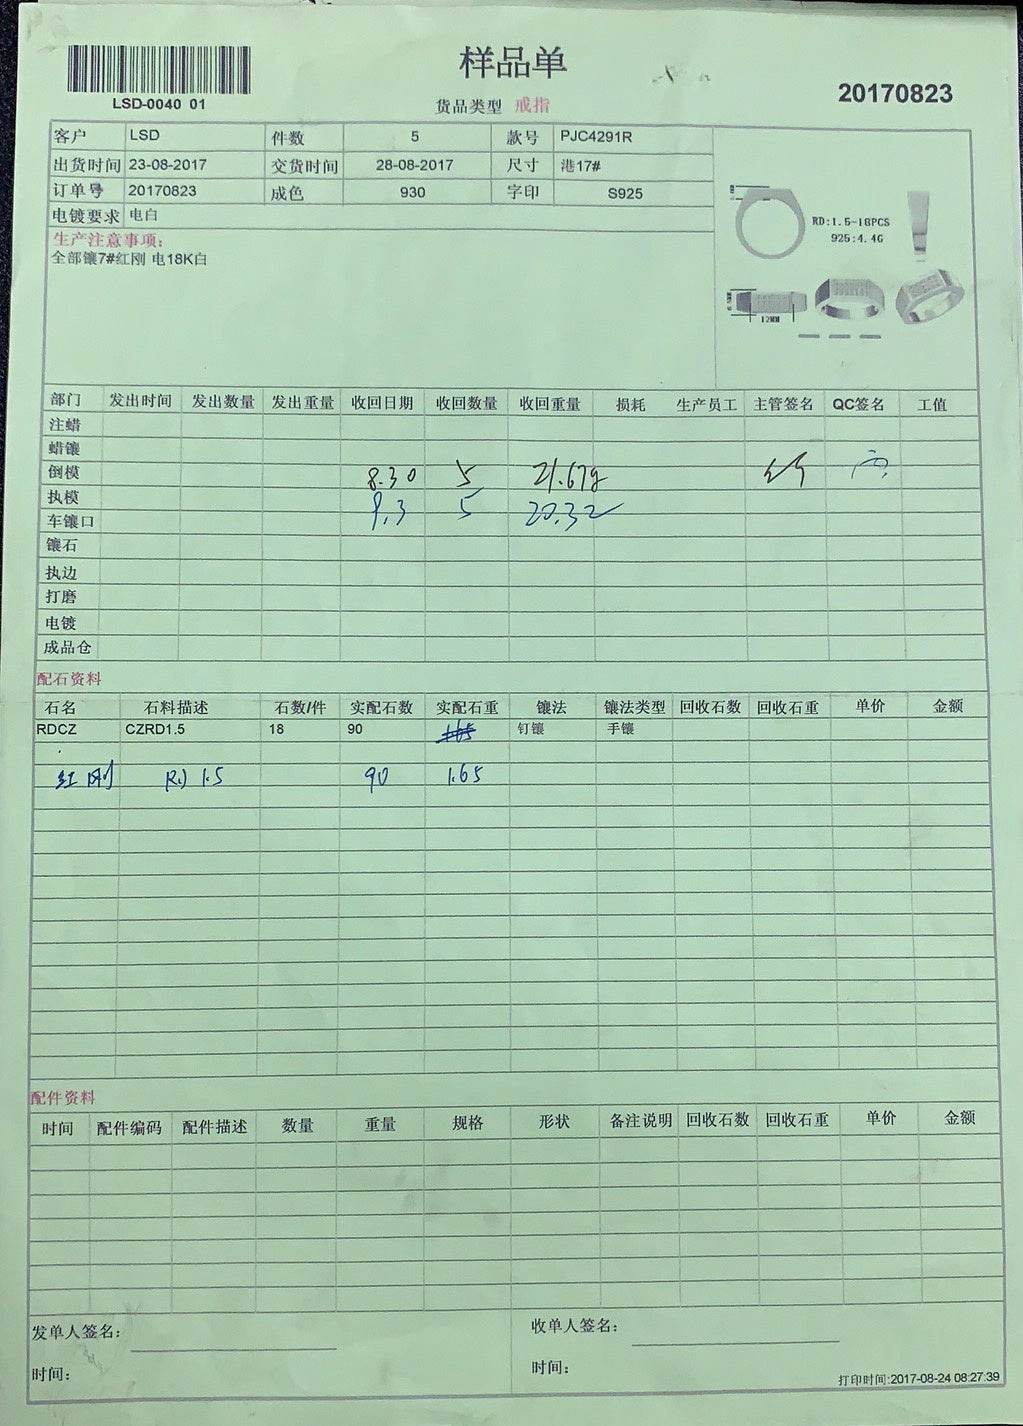 样品单
LSD-0040 01
货品类型 戒指
20170823
客户 LSD 件数 5 款号 PJC4291R
出货时间 23-08-2017 交货时间 28-08-2017 尺寸 港17#
订单号 20170823 成色 930 字印 S925
电镀要求 电白
生产注意事项:
全部镶7#红刚 电18K白
RD:1.5-18PCS
925:4.4G
12MM
部门 发出时间 发出数量 发出重量 收回日期 收回数量 收回重量 损耗 生产员工 主管签名 QC签名 工值
注蜡
蜡镶
倒模 8.30 5 21.67g
执模 9.3 5 20.32
车镶口
镶石
执边
打磨
电镀
成品仓
配石资料
石名 石料描述 石数/件 实配石数 实配石重 镶法 镶法类型 回收石数 回收石重 单价 金额
RDCZ CZRD1.5 18 90 钉镶 手镶
红刚 RD 1.5 90 1.65
配件资料
时间 配件编码 配件描述 数量 重量 规格 形状 备注说明 回收石数 回收石重 单价 金额
发单人签名: 收单人签名:
时间: 时间:
打印时间:2017-08-24 08:27:39